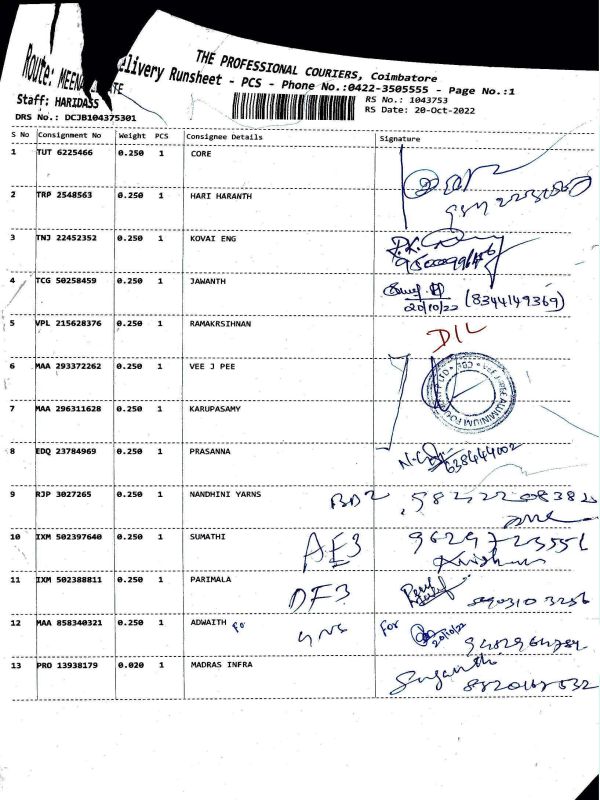 THE PROFESSIONAL COURIERS, Coimbatore
Delivery Runsheet - PCS - Phone No.:0422-3505555 - Page No.:1
Route:
Staff: HARIDASS
RS No.: 1043753
DRS No.: DCJB104375301
RS Date: 20-Oct-2022
S No Consignment No Weight PCS Consignee Details Signature
1 TUT 6225466 0.250 1 CORE
2 TRP 2548563 0.250 1 HARI HARANTH
3 TNJ 22452352 0.250 1 KOVAI ENG
4 TCG 50258459 0.250 1 JAWANTH
20/10/22 (8344149369)
5 VPL 215628376 0.250 1 RAMAKRSIHNAN
D/L
6 MAA 293372262 0.250 1 VEE J PEE
7 MAA 296311628 0.250 1 KARUPASAMY
8 EDQ 23784969 0.250 1 PRASANNA
9 RJP 3027265 0.250 1 NANDHINI YARNS
10 IXM 502397640 0.250 1 SUMATHI AE3 9629723551
11 IXM 502388811 0.250 1 PARIMALA DF3
12 MAA 858340321 0.250 1 ADWAITH for
20/10/22
13 PRO 13938179 0.020 1 MADRAS INFRA